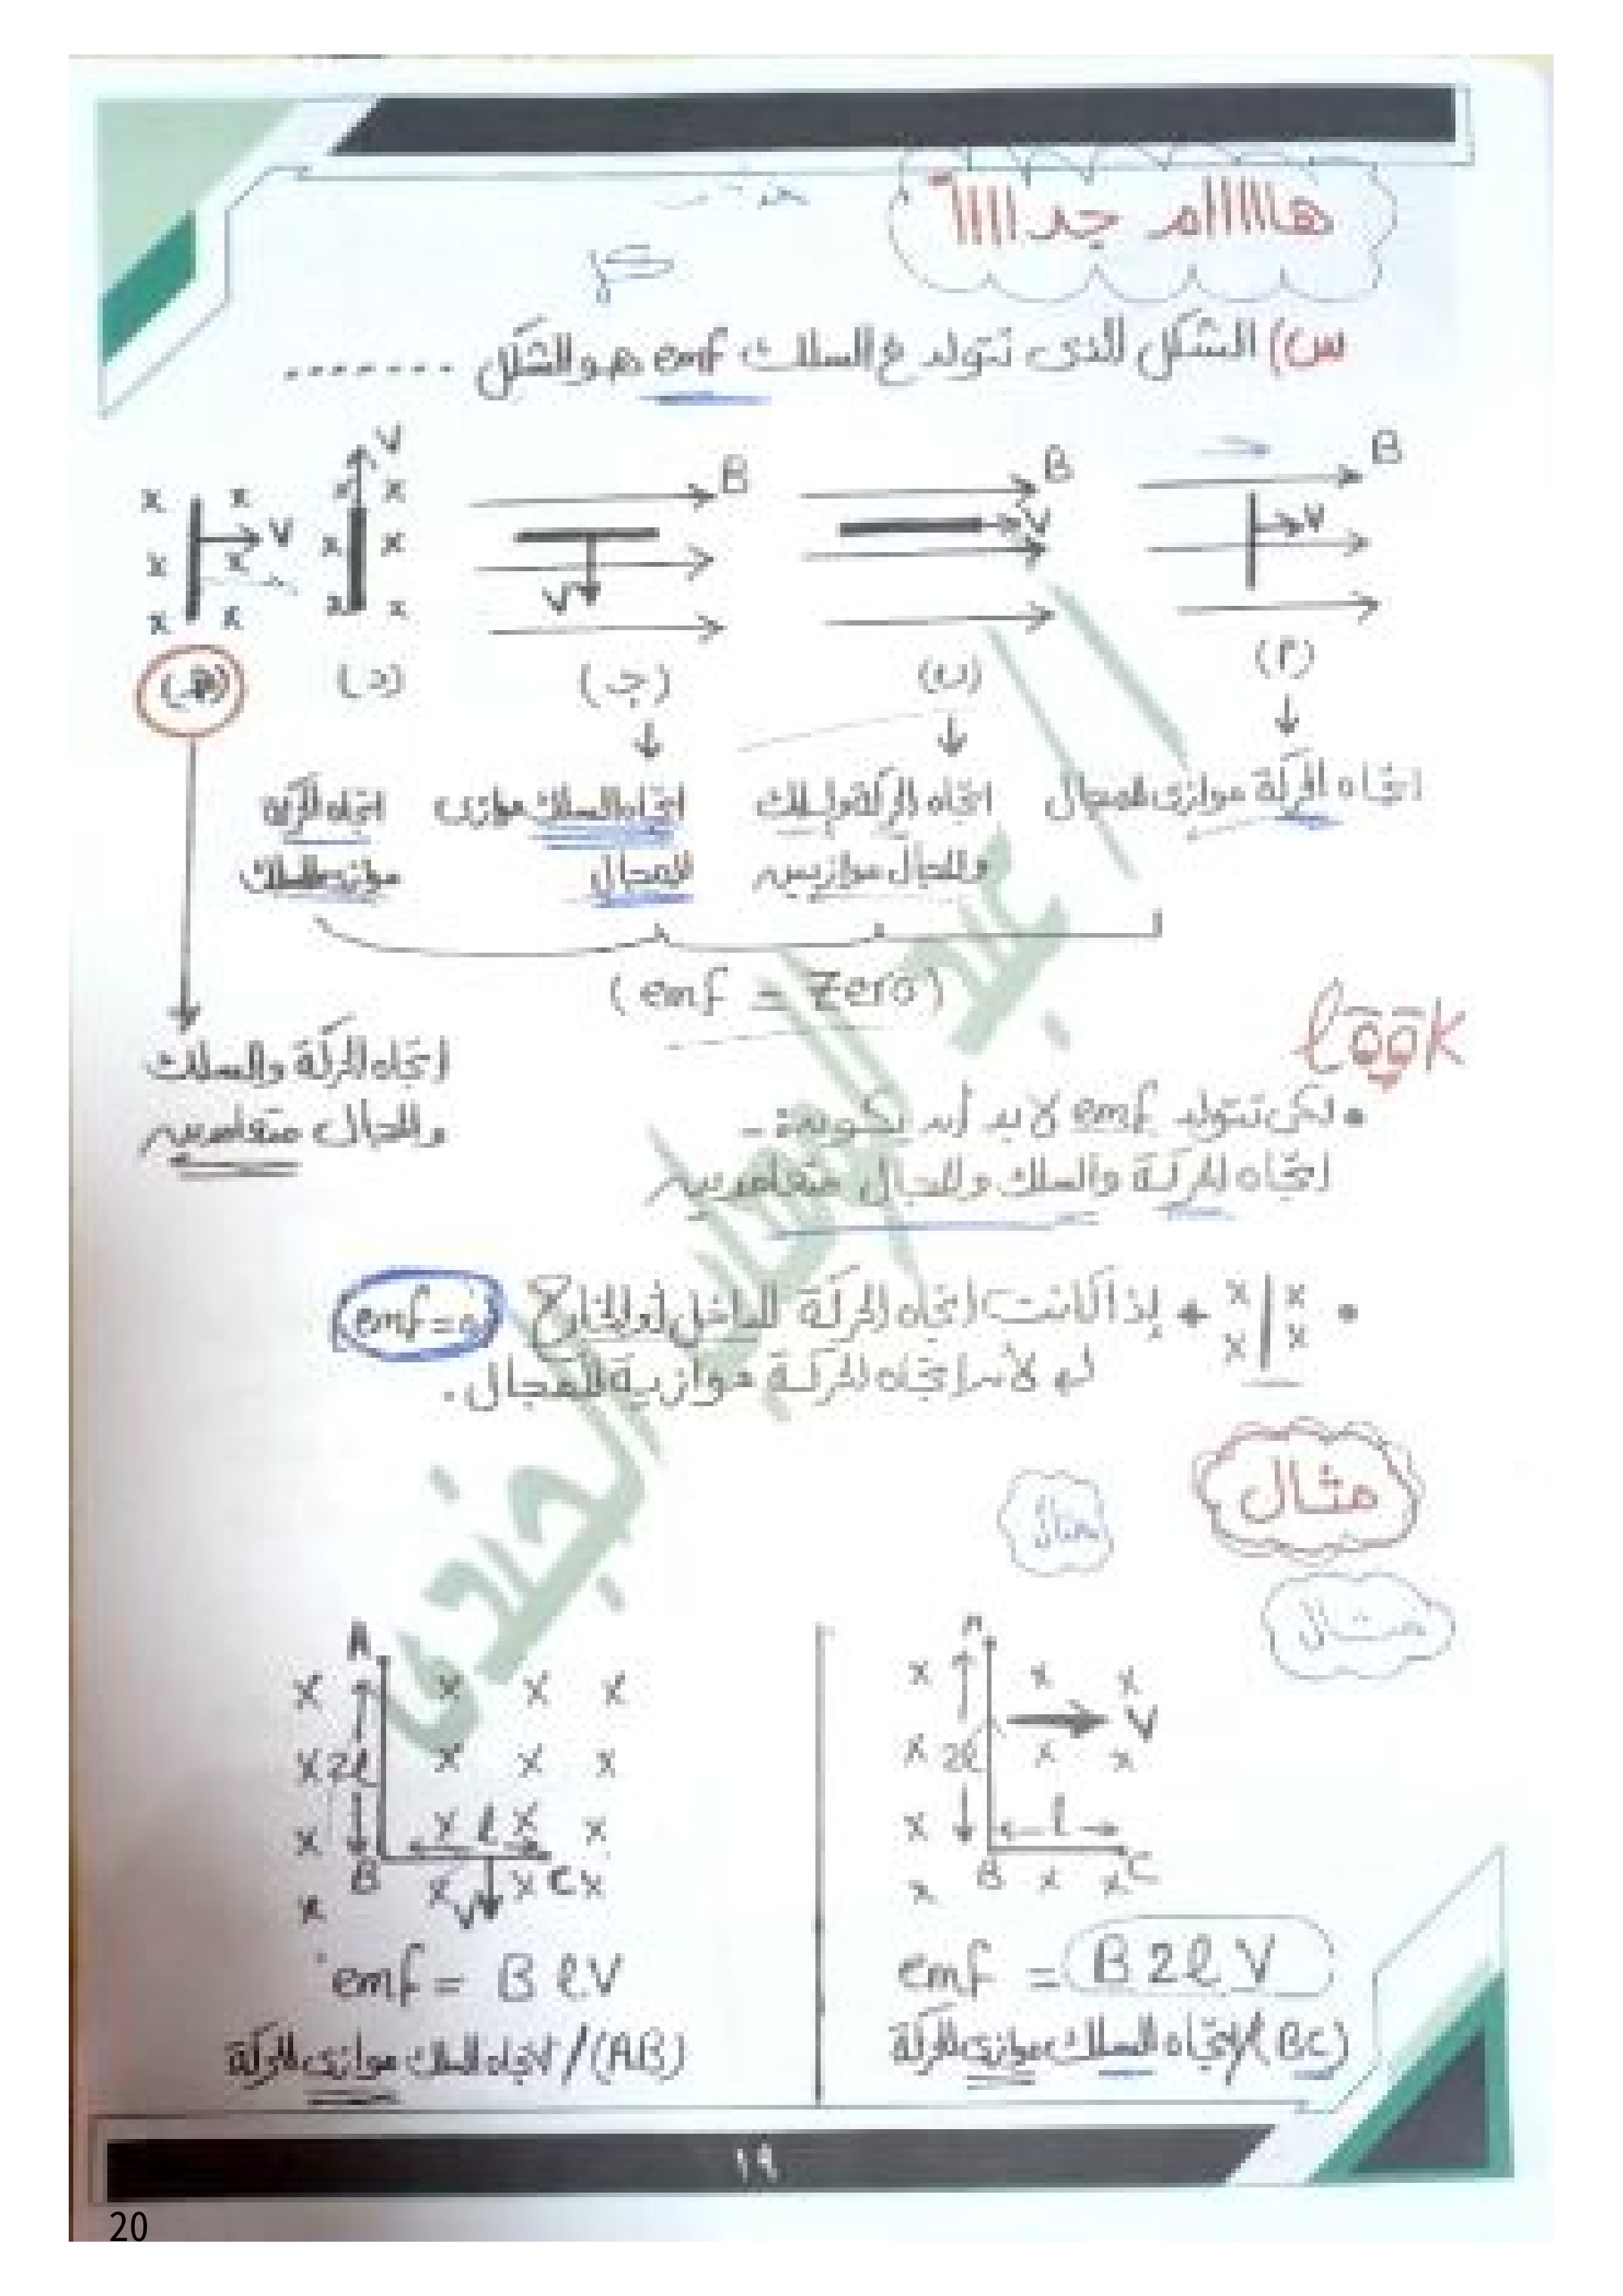 هاااام جدااااً
س) الشكل الذى تتولد ع السلك emf هو الشكل .......
B
V
B
V
B
V
V
V
(أ)
(ب)
(جـ)
(د)
(هـ)
اتجاه الحركة موازى للمجال
اتجاه الحركة والسلك
والمجال موازيين
اتجاه السلك موازى
للمجال
اتجاه الحركة
موازى للسلك
(emf = Zero)
اتجاه الحركة والسلك
والمجال متعامدين
look
• لكى تتولد emf لابد أن يكون :-
اتجاه الحركة والسلك والمجال متعامدين
• x x x x إذا كانت اتجاه الحركة للداخل أو للخارج emf = 0
لأن اتجاه الحركة موازية للمجال .
مثال
مثال
مثال
A
V
2ℓ
ℓ
B
C
emf = B 2ℓ V
(BC) / اتجاه السلك موازى للحركة
A
2ℓ
ℓ
B
C
V
emf = B ℓ V
(AB) / اتجاه السلك موازى للحركة
١٩
20
عبد
الجندى